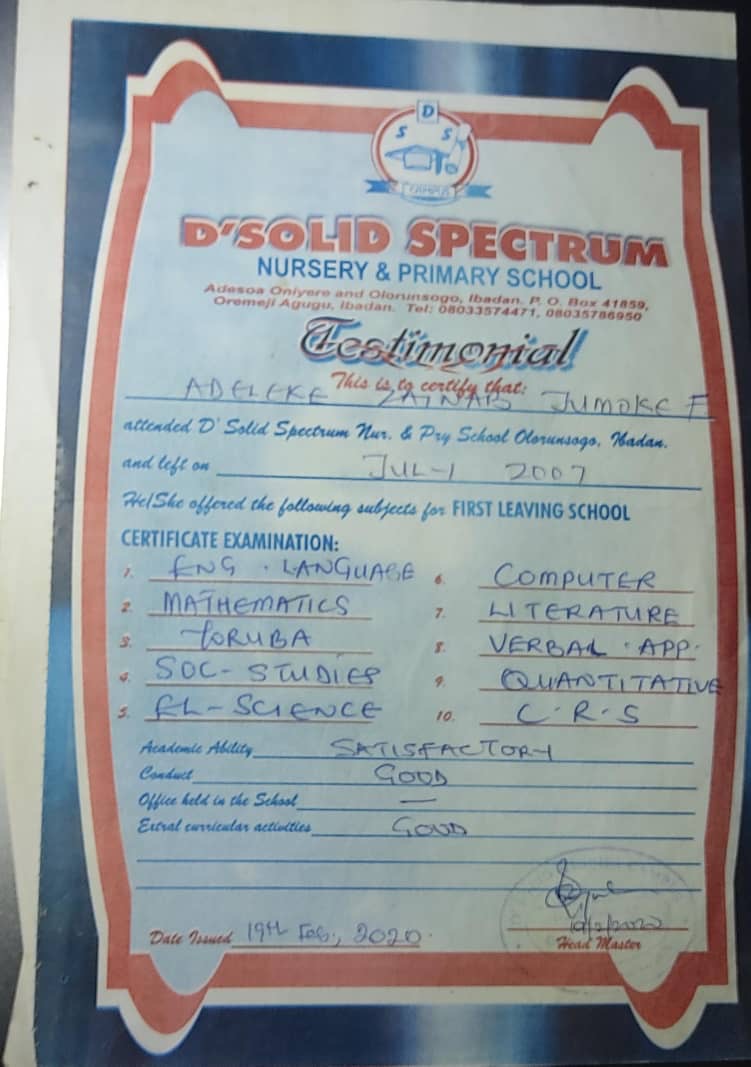 D
S S
CAMPUS
D'SOLID SPECTRUM
NURSERY & PRIMARY SCHOOL
Adesoa Oniyere and Olorunsogo, Ibadan. P. O. Box 41859,
Oremeji Agugu, Ibadan. Tel: 08033574471, 08035786950
Testimonial
This is to certify that:
ADELEKE ZAINAB JUMOKE F
attended D' Solid Spectrum Nur. & Pry School Olorunsogo, Ibadan.
and left on JULY 2007
He/She offered the following subjects for FIRST LEAVING SCHOOL
CERTIFICATE EXAMINATION:
1. ENG. LANGUAGE 6. COMPUTER
2. MATHEMATICS 7. LITERATURE
3. YORUBA 8. VERBAL . APP.
4. SOC- STUDIES 9. QUANTITATIVE
5. EL-SCIENCE 10. C.R.S
Academic Ability SATISFACTORY
Conduct GOOD
Office held in the School —
Extral curricular activities GOOD
Date Issued 19th Feb., 2020.
Head Master